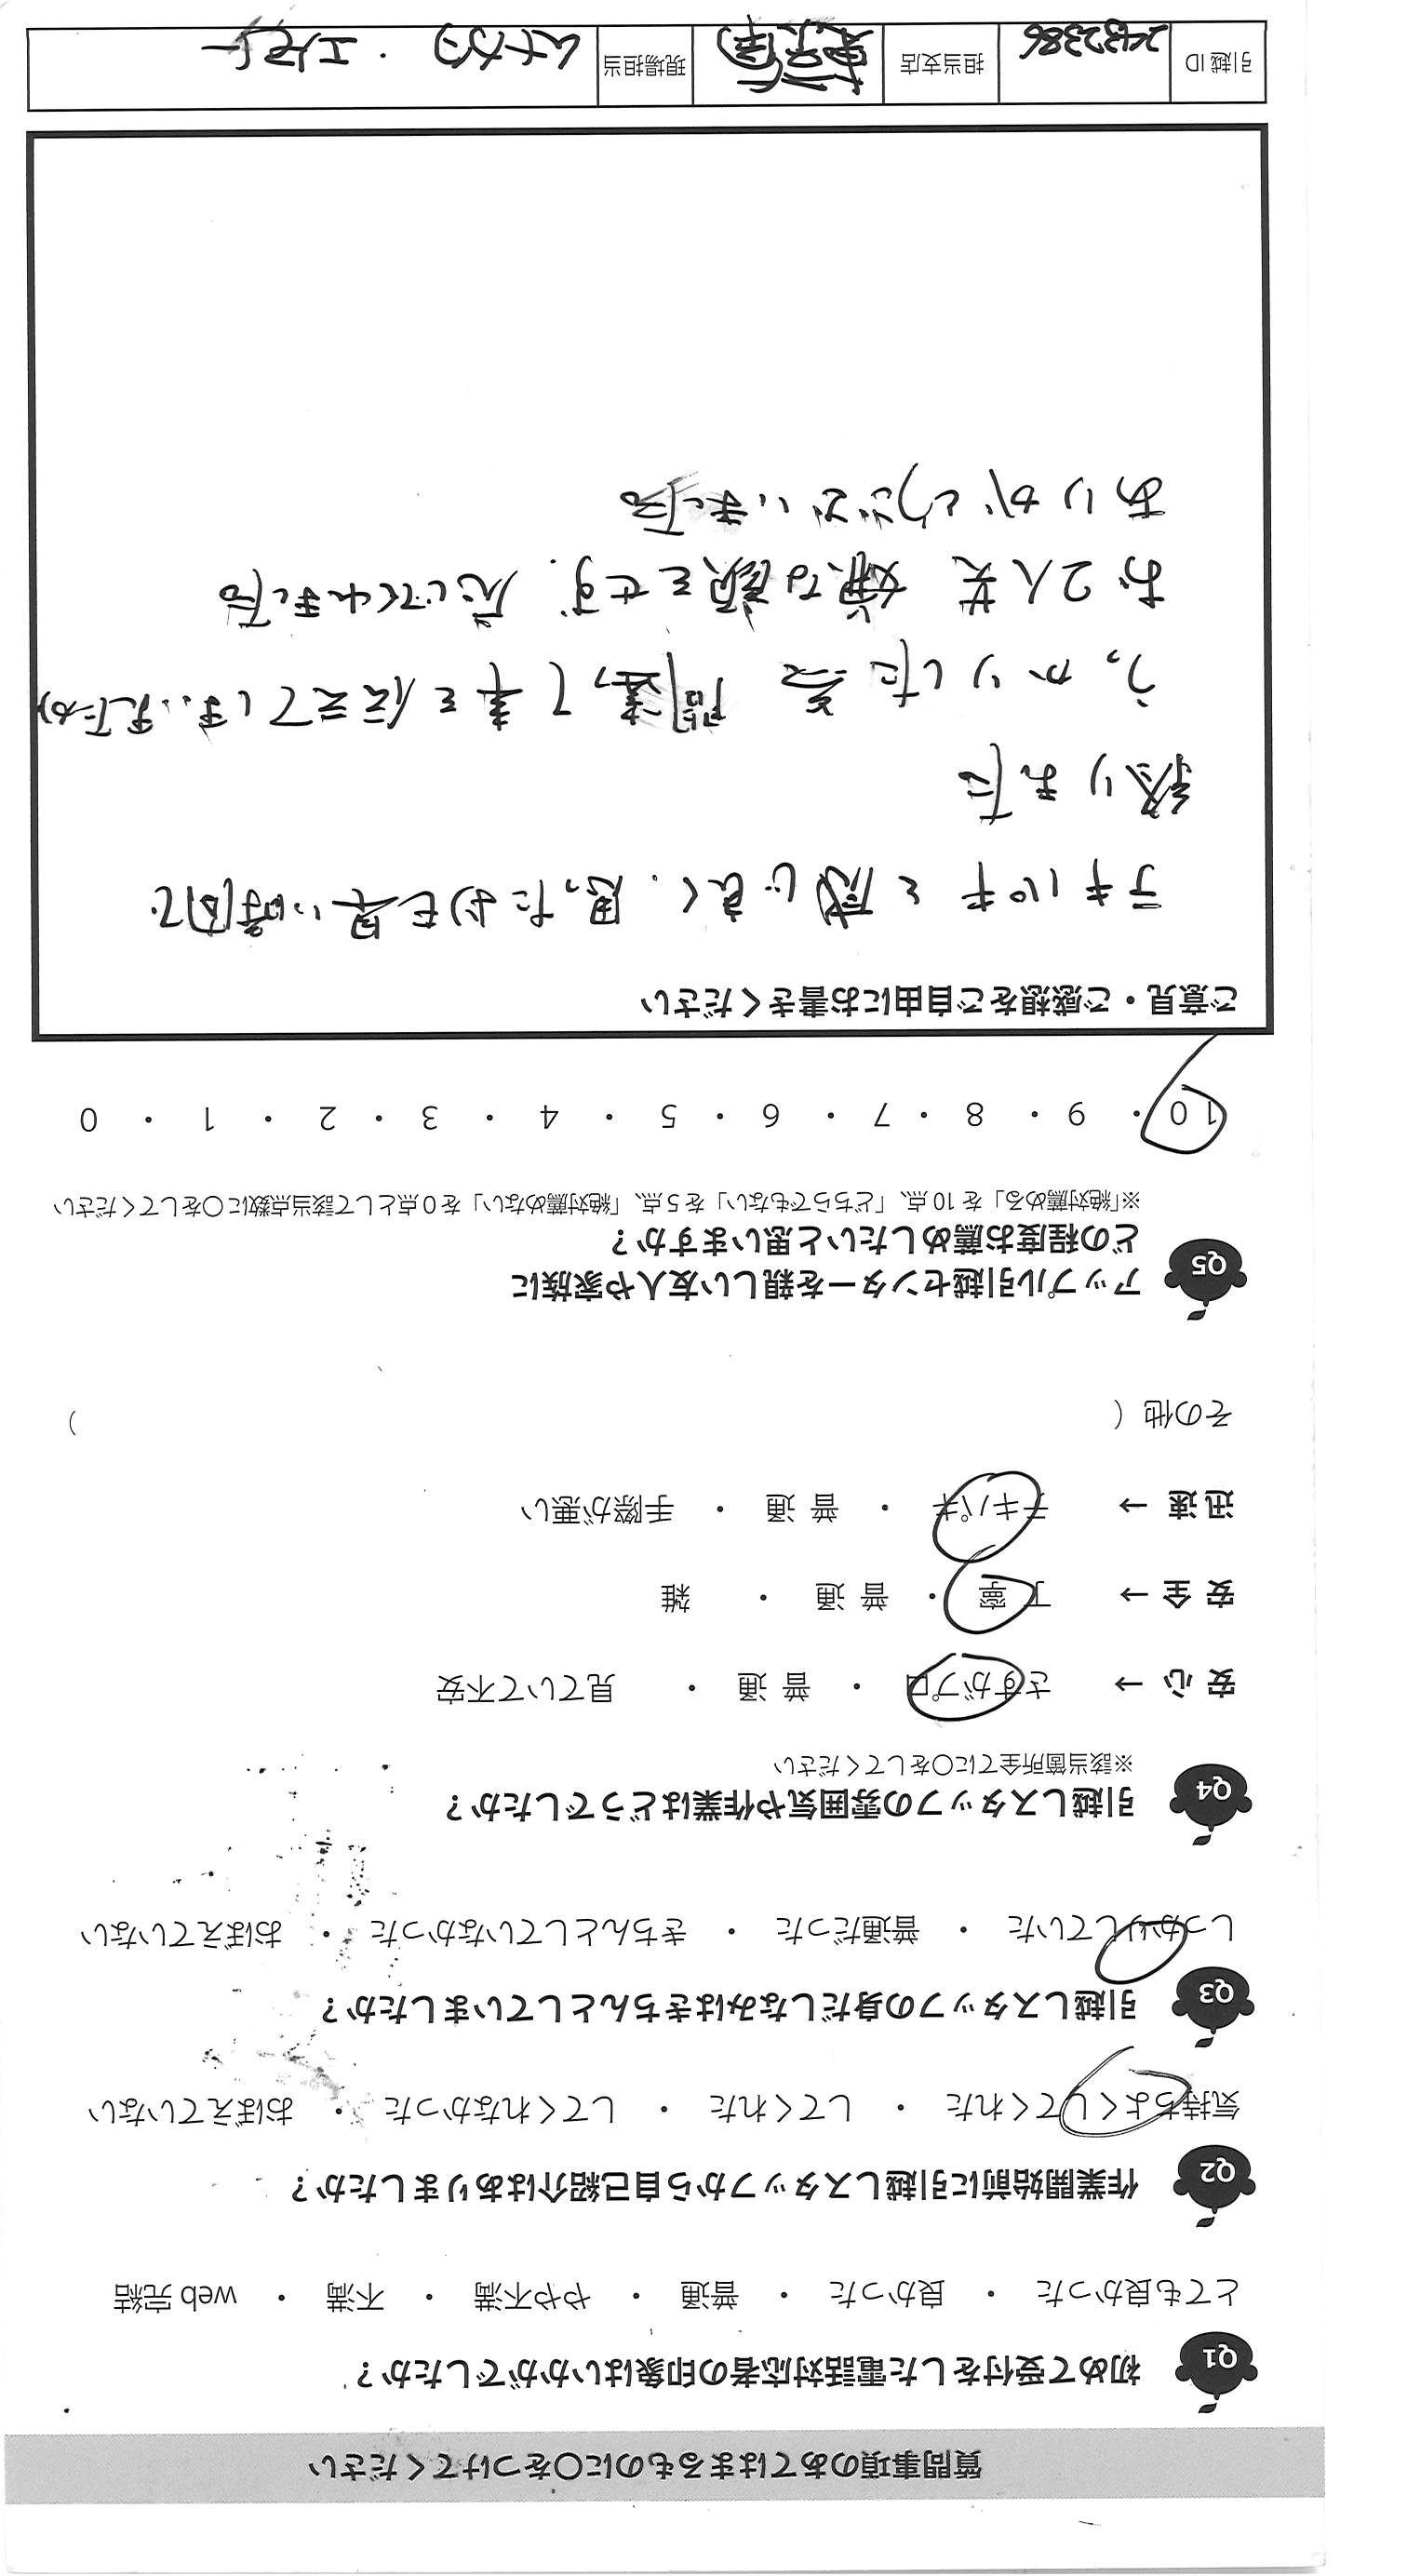 質問事項のあてはまるものに〇をつけてください
Q1 初めて受付をした電話対応者の印象はいかがでしたか？
とても良かった ・ 良かった ・ 普通 ・ やや不満 ・ 不満 ・ web完結
Q2 作業開始前に引越しスタッフから自己紹介はありましたか？
気持ちよくしてくれた ・ してくれた ・ してくれなかった ・ おぼえていない
Q3 引越しスタッフの身だしなみはきちんとしていましたか？
しっかりしていた ・ 普通だった ・ きちんとしていなかった ・ おぼえていない
Q4 引越しスタッフの雰囲気や作業はどうでしたか？
※該当箇所全てに〇をしてください
安心 → さすがプロ ・ 普通 ・ 見ていて不安
安全 → 丁寧 ・ 普通 ・ 雑
迅速 → テキパキ ・ 普通 ・ 手際が悪い
その他（ ）
Q5 アップル引越センターを親しい友人や家族に
どの程度お薦めしたいと思いますか？
※「絶対薦める」を10点、「どちらでもない」を5点、「絶対薦めない」を0点として該当点数に〇をしてください
10 ・ 9 ・ 8 ・ 7 ・ 6 ・ 5 ・ 4 ・ 3 ・ 2 ・ 1 ・ 0
ご意見・ご感想をご自由にお書きください
テキパキと感じ良く、思ったよりも早い時間で
終りました
うっかりした 間違って事を伝えてしまいましたが
お2人共 嫌な顔をせず、応じてくれました
ありがとうございました
引越ID 2432386 担当支店 現場担当